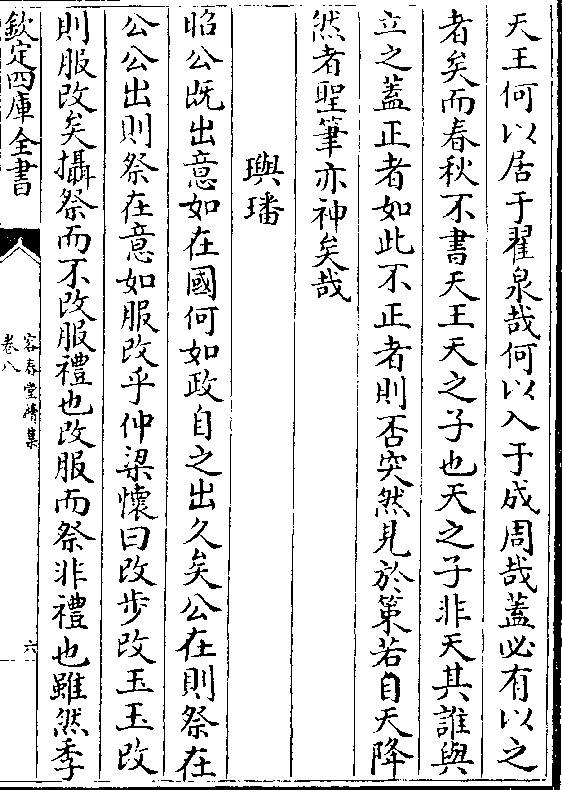 天王何以居于翟泉哉何以入于成周哉蓋必有以之
者矣而春秋不書天王天之子也天之子非天其誰與
立之蓋正者如此不正者則否突然見於策若自天降
然者聖筆亦神矣哉
璵璠
昭公既出意如在國何如政自之出久矣公在則祭在
公公出則祭在意如服改乎仲梁懷曰改步改玉玉改
則服改矣攝祭而不改服禮也改服而祭非禮也雖然季
欽定四庫全書
容春堂續集
卷八
六